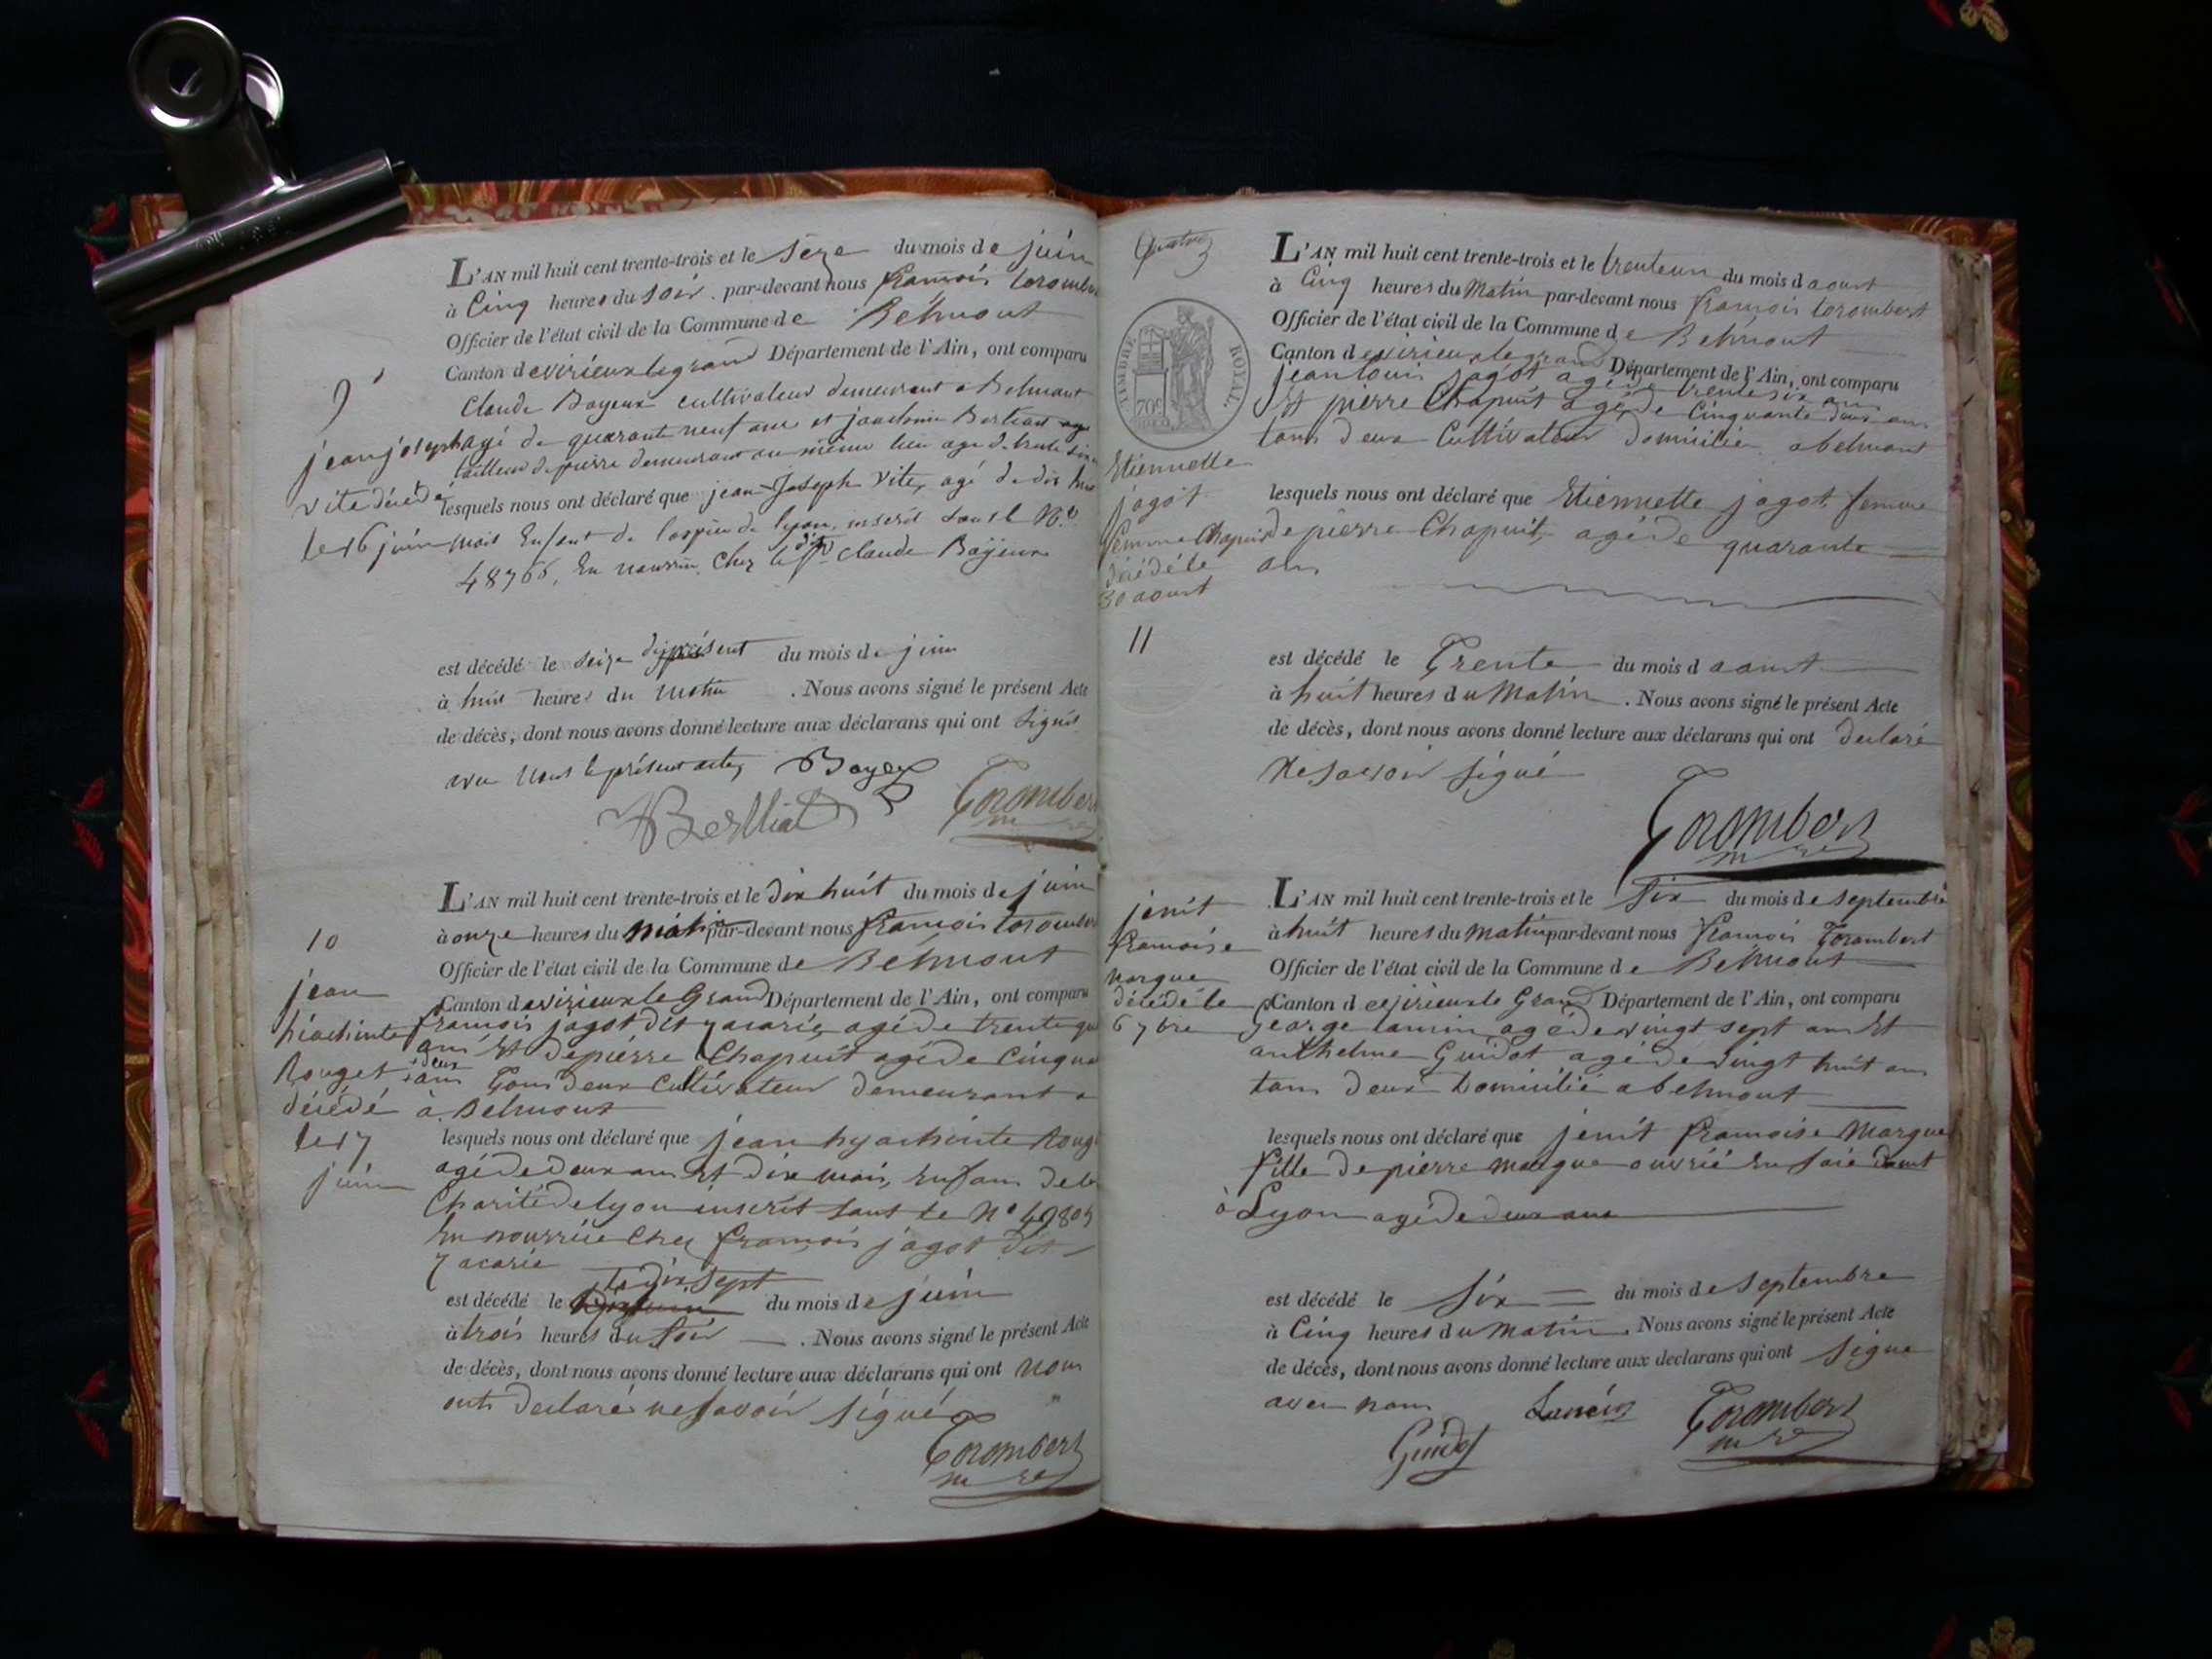 L'AN mil huit cent trente-trois et le Seze du mois de juin
à Cinq heures du soir par-devant nous françois torombert
Officier de l'état civil de la Commune de Belmont
Canton de virieux le grand Département de l'Ain, ont comparu
9
Claude Bayeux cultivateur demeurant a Belmont
agé de quarante neuf ans et
tailleur de pierre demeurant au même lieu age de trente
jean joseph
vite décédé
le 16 juin
lesquels nous ont déclaré que jean Joseph Vite, agé de dix huit
mois Enfant de l'ospice de lyon, inscrit sous le N.o
48766, En nourrice Chez le dit Claude Bayeux
est décédé le seize du présent du mois de juin
à huit heures du matin . Nous avons signé le présent Acte
de décès, dont nous avons donné lecture aux déclarans qui ont signés
avec nous le présent acte, Bayeux
Berlliat Torombert
m re
L'AN mil huit cent trente-trois et le dix huit du mois de juin
à onze heures du matin par-devant nous françois torombert
10
Officier de l'état civil de la Commune de Belmont
Canton de virieux le Grand Département de l'Ain, ont comparu
jean
hiachinte
Rouget
décédé
le 17
juin
françois jagot dit zacarie, agé de trente
ans Et de pierre Chapuit agé de Cinquante
deux ans Tous deux Cultivateur demeurant
à Belmont
lesquels nous ont déclaré que jean hyachinte Rouget
agé de deux ans Et dix mois, Enfans de la
Charité de lyon inscrit sous le N° 49805
En nourrice Chez françois jagot dit
zacarie
le dix sept
est décédé le du mois de juin
à trois heures du soir . Nous avons signé le présent Acte
de décès, dont nous avons donné lecture aux déclarans qui ont nous
ont declaré ne savoir signé
Torombert
m re
Quatre
L'AN mil huit cent trente-trois et le trenteun du mois d aoust
à Cinq heures du Matin par-devant nous françois torombert
Officier de l'état civil de la Commune de Belmont
Canton de virieux le grand Département de l'Ain, ont comparu
TIMBRE ROYAL
70c
jean louis jagot agé de trente six ans
Et pierre Chapuit agé de Cinquante deux ans
tous deux Cultivateur domicilié a belmont
Etiennette
jagot
femme Chapuis
décédé le
30 aoust
lesquels nous ont déclaré que Etiennette jagot femme
de pierre Chapuit, agé de quarante
ans
11
est décédé le Trente du mois d aoust
à huit heures du Matin . Nous avons signé le présent Acte
de décès, dont nous avons donné lecture aux déclarans qui ont declaré
Ne savoir signé
Torombert
m re
L'AN mil huit cent trente-trois et le Six du mois de septembre
à huit heures du matin par-devant nous françois Torombert
Officier de l'état civil de la Commune de Belmont
Canton de virieux le Grand Département de l'Ain, ont comparu
jenit
françoise
margue
décédé le
6 7bre
George agé de vingt sept ans Et
anthelme Guidot agé de vingt huit ans
tous deux Domicilié a belmont
lesquels nous ont déclaré que jenit françoise Margue
fille de pierre margue ouvrié En soie
à Lyon agé de deux ans
est décédé le Six du mois de septembre
à Cinq heures du matin . Nous avons signé le présent Acte
de décès, dont nous avons donné lecture aux déclarans qui ont signé
avec nous Torombert
Guidot m re